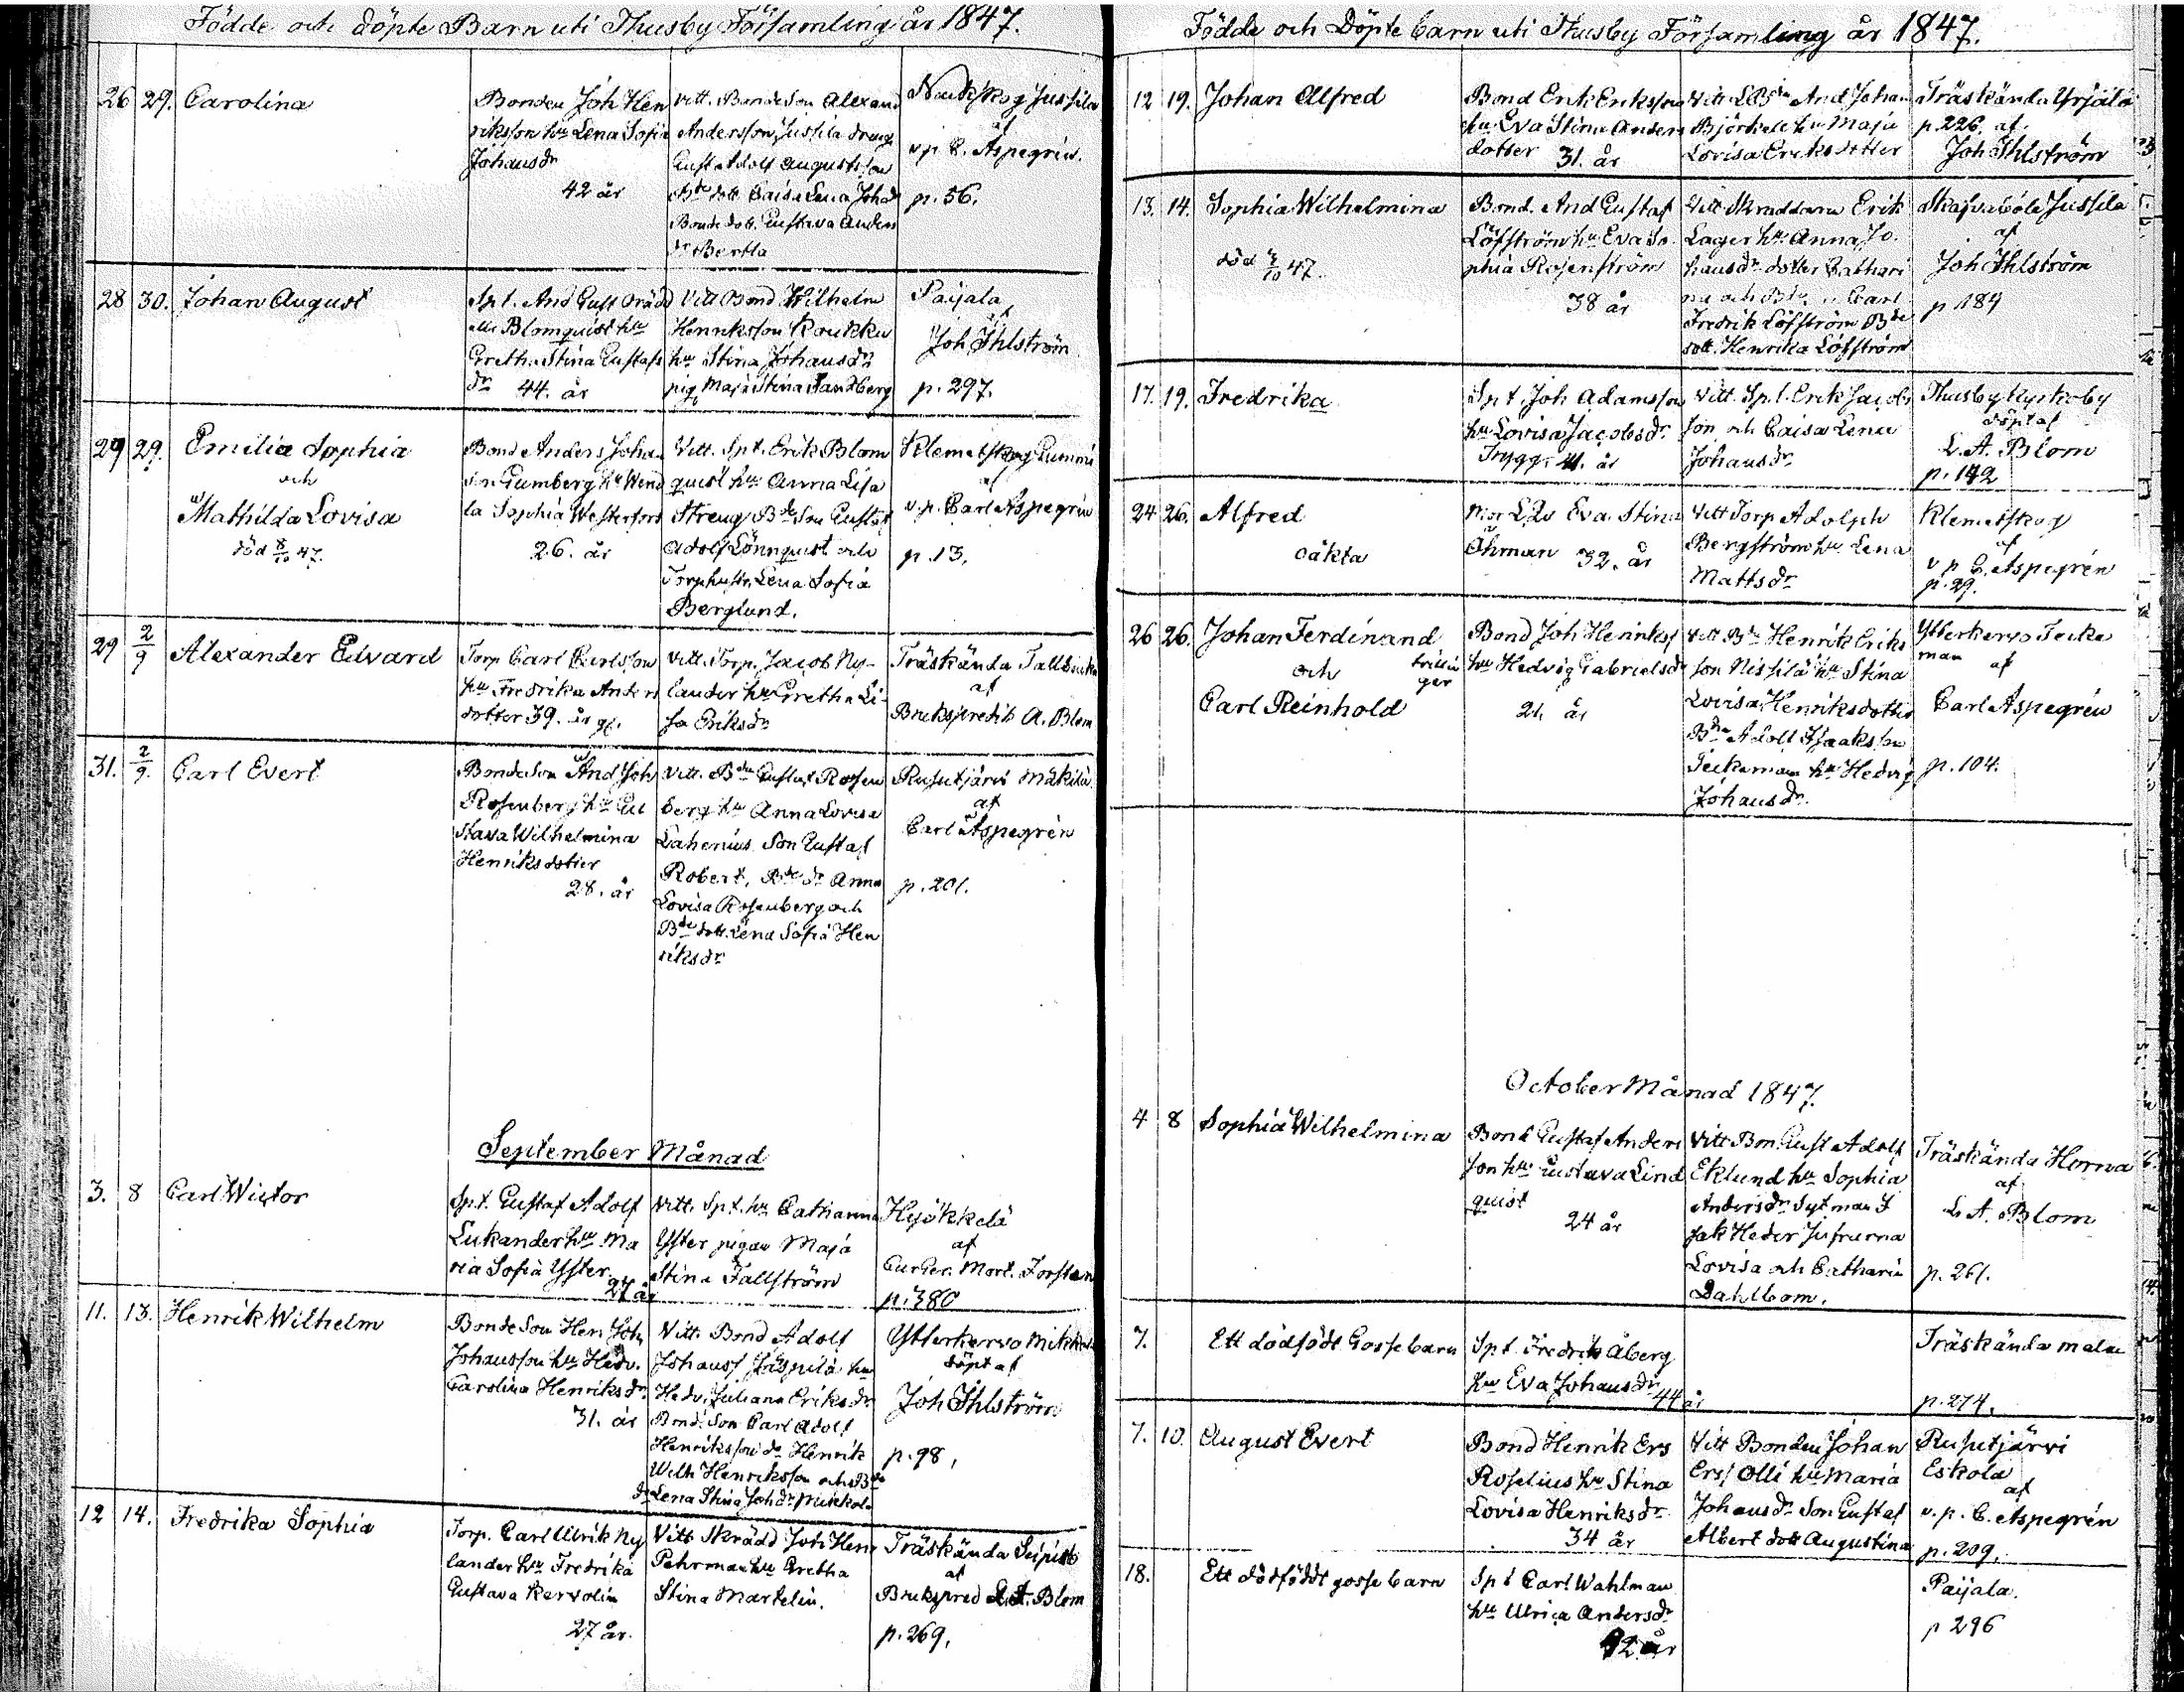 Födde och döpte Barn uti Thusby Församling år 1847.
26 29. Carolina
Bonden Joh Hen
riksson hu Lena Sofia
Johansdr
42 år
Vitt. Bonde Son Alexand
Andersson Jussila dräng
Gust Adolf Augustsson
Bde dott Caisa Lena Johdr
Bonde dott. Gustava Anders
dr Bertla
Nackskog Jussila
af
v.p. C. Aspegrén.
p. 56.
28 30. Johan August
Spt. And Gust
Blomquist hu
Gretha Stina Gustafs
dr 44. år
Vitt Bond Wilhelm
Henriksson Roukku
hu Stina Johansdr
pig. Maja Stina Sandberg
Paijala
af
Joh Ihlström
p. 297.
29 29. Emilia Sophia
och
Mathilda Lovisa
död 8/10 47.
Bond Anders Johan
son Gumberg hu Wend
la Sophia Westerfors
26. år
Vitt. Spt. Erik Blom
quist hu Anna Lisa
Streng Bde Son Gustaf
Adolf Lönnquist och
Torp hustr. Lena Sofia
Berglund.
Klemetskog Gummi
af
v.p. Carl Aspegrén
p. 13.
29 2/9 Alexander Edvard
Torp Carl Carlsson
hu Fredrika Anders
dotter 39. år gl.
Vitt. Torp. Jacob Ny-
lander hu Gretha Li-
sa Eriksdr
Träskända Tallbacka
af
Brukspredik A. Blom
31. 2/9. Carl Evert
Bonde Son And Joh
Rosenberg hu Gu
stava Wilhelmina
Henriksdotter
28. år
Vitt. Bden Gustaf Rosen
berg hu Anna Lovisa
Lahenius Son Gustaf
Robert, Bde dr Anna
Lovisa Rosenberg och
Bde dott. Lena Sofia Hen
riksdr
Rusutjärvi Mäkilä
af
Carl Aspegrén
p. 201.
September Månad
3. 8 Carl Wictor
Spt. Gustaf Adolf
Lukander hu Ma
ria Sofia Yster
27 år
Vitt. Spt. hu Catharina
Yster pigan Maja
Stina Fallström
Hyökkelä
af
Mort. Forsten
p. 380
11. 13. Henrik Wilhelm
Bonde Son Hen Joh
Johansson hu Hedv.
Carolina Henriksdr.
31. år
Vitt. Bond Adolf
Johanss Jäspilä hu
Hedv. Juliana Eriksdr
Bond. Son Carl Adolf
Henriksson do Henrik
Wilh Henriksson och Bde
dr Lena Stina Johdr
Ytterkervo
döpt af
Joh Ihlström
p. 98,
12 14. Fredrika Sophia
Torp. Carl Ulrik Ny
lander hu Fredrika
Gustava Kervolin
27 år.
Vitt Skrädd Joh Henr
Pehrman hu Gretha
Stina Martelin.
Träskända Seipilä
af
Brukspred L. A. Blom
p. 269,
Födde och Döpte barn uti Thusby Församling år 1847.
12 19. Johan Alfred
Bond Erik Eriksson
hu Eva Stina Anders
dotter 31. år
Vitt LBde And Johan
Björkell hu Maja
Lovisa Eriksdotter
Träskända Yrjälä
p. 226. af
Joh Ihlström
13. 14. Sophia Wilhelmina
död 4/10 47.
Bond. And Gustaf
Löfström hu Eva So
phia Rosenström
38 år
Vitt Skraddaren Erik
Lager hu Anna Jo
hansdr dotter Cathari
na och Bde Carl
Fredrik Löfström Bde
dott. Henrika Löfström
Skafvaböle Jussila
af
Joh Ihlström
p 184
17. 19. Fredrika
Spt. Joh Adamsson
hu Lovisa Jacobsdr.
Trygg. 41. år
Vitt. Spt. Erik Jacobs
son och Caisa Lena
Johansdr
Thusby Kyrkoby
döpt af
L. A. Blom
p. 142
24 26. Alfred
oäkta
Mor Eva Stina
Öhman 32. år
Vitt Torp Adolph
Bergström hu Lena
Mattsdr
Klemetskog
af
v p C. Aspegrén
p. 29.
26 26. Johan Ferdinand
och
Carl Reinhold
trillin
gar
Bond Joh Henrikss
hu Hedvig Gabrielsdr
21. år
Vitt Bde Henrik Eriks
son Nissilä hu Stina
Lovisa Henriksdotter
Bde Adolf Isaksson
Teckeman hu Hedvig
Johansdr.
Ytterkervo Tecke
man af
Carl Aspegrén
p. 104.
October Månad 1847.
4 8 Sophia Wilhelmina
Bond Gustaf Anders
son hu Gustava Lind
quist
24 år
Vitt Bon. Gust Adolf
Eklund hu Sophia
Andersdr Sytman I
sak Heder Jufrurna
Lovisa och Catharin
Dahlbom.
Träskända Horna
af
L. A. Blom
p. 261.
7. Ett dödfödt Gosse barn
Spt. Fredrik Åberg
hu Eva Johansdr
44 år
Träskända malm
p. 274.
7. 10. August Evert
Bond Henrik Ers
Roselius hu Stina
Lovisa Henriksdr
34 år
Vitt Bonden Johan
Erss Olli hu Maria
Johansdr Son Gustaf
Albert dott Augustina
Rusutjärvi
Eskola
af
v. p. C. Aspegrén
p. 209.
18. Ett dödfödt gosse barn
Spt Carl Wahlman
hu Ulrica Andersdr
Paijala.
p 296